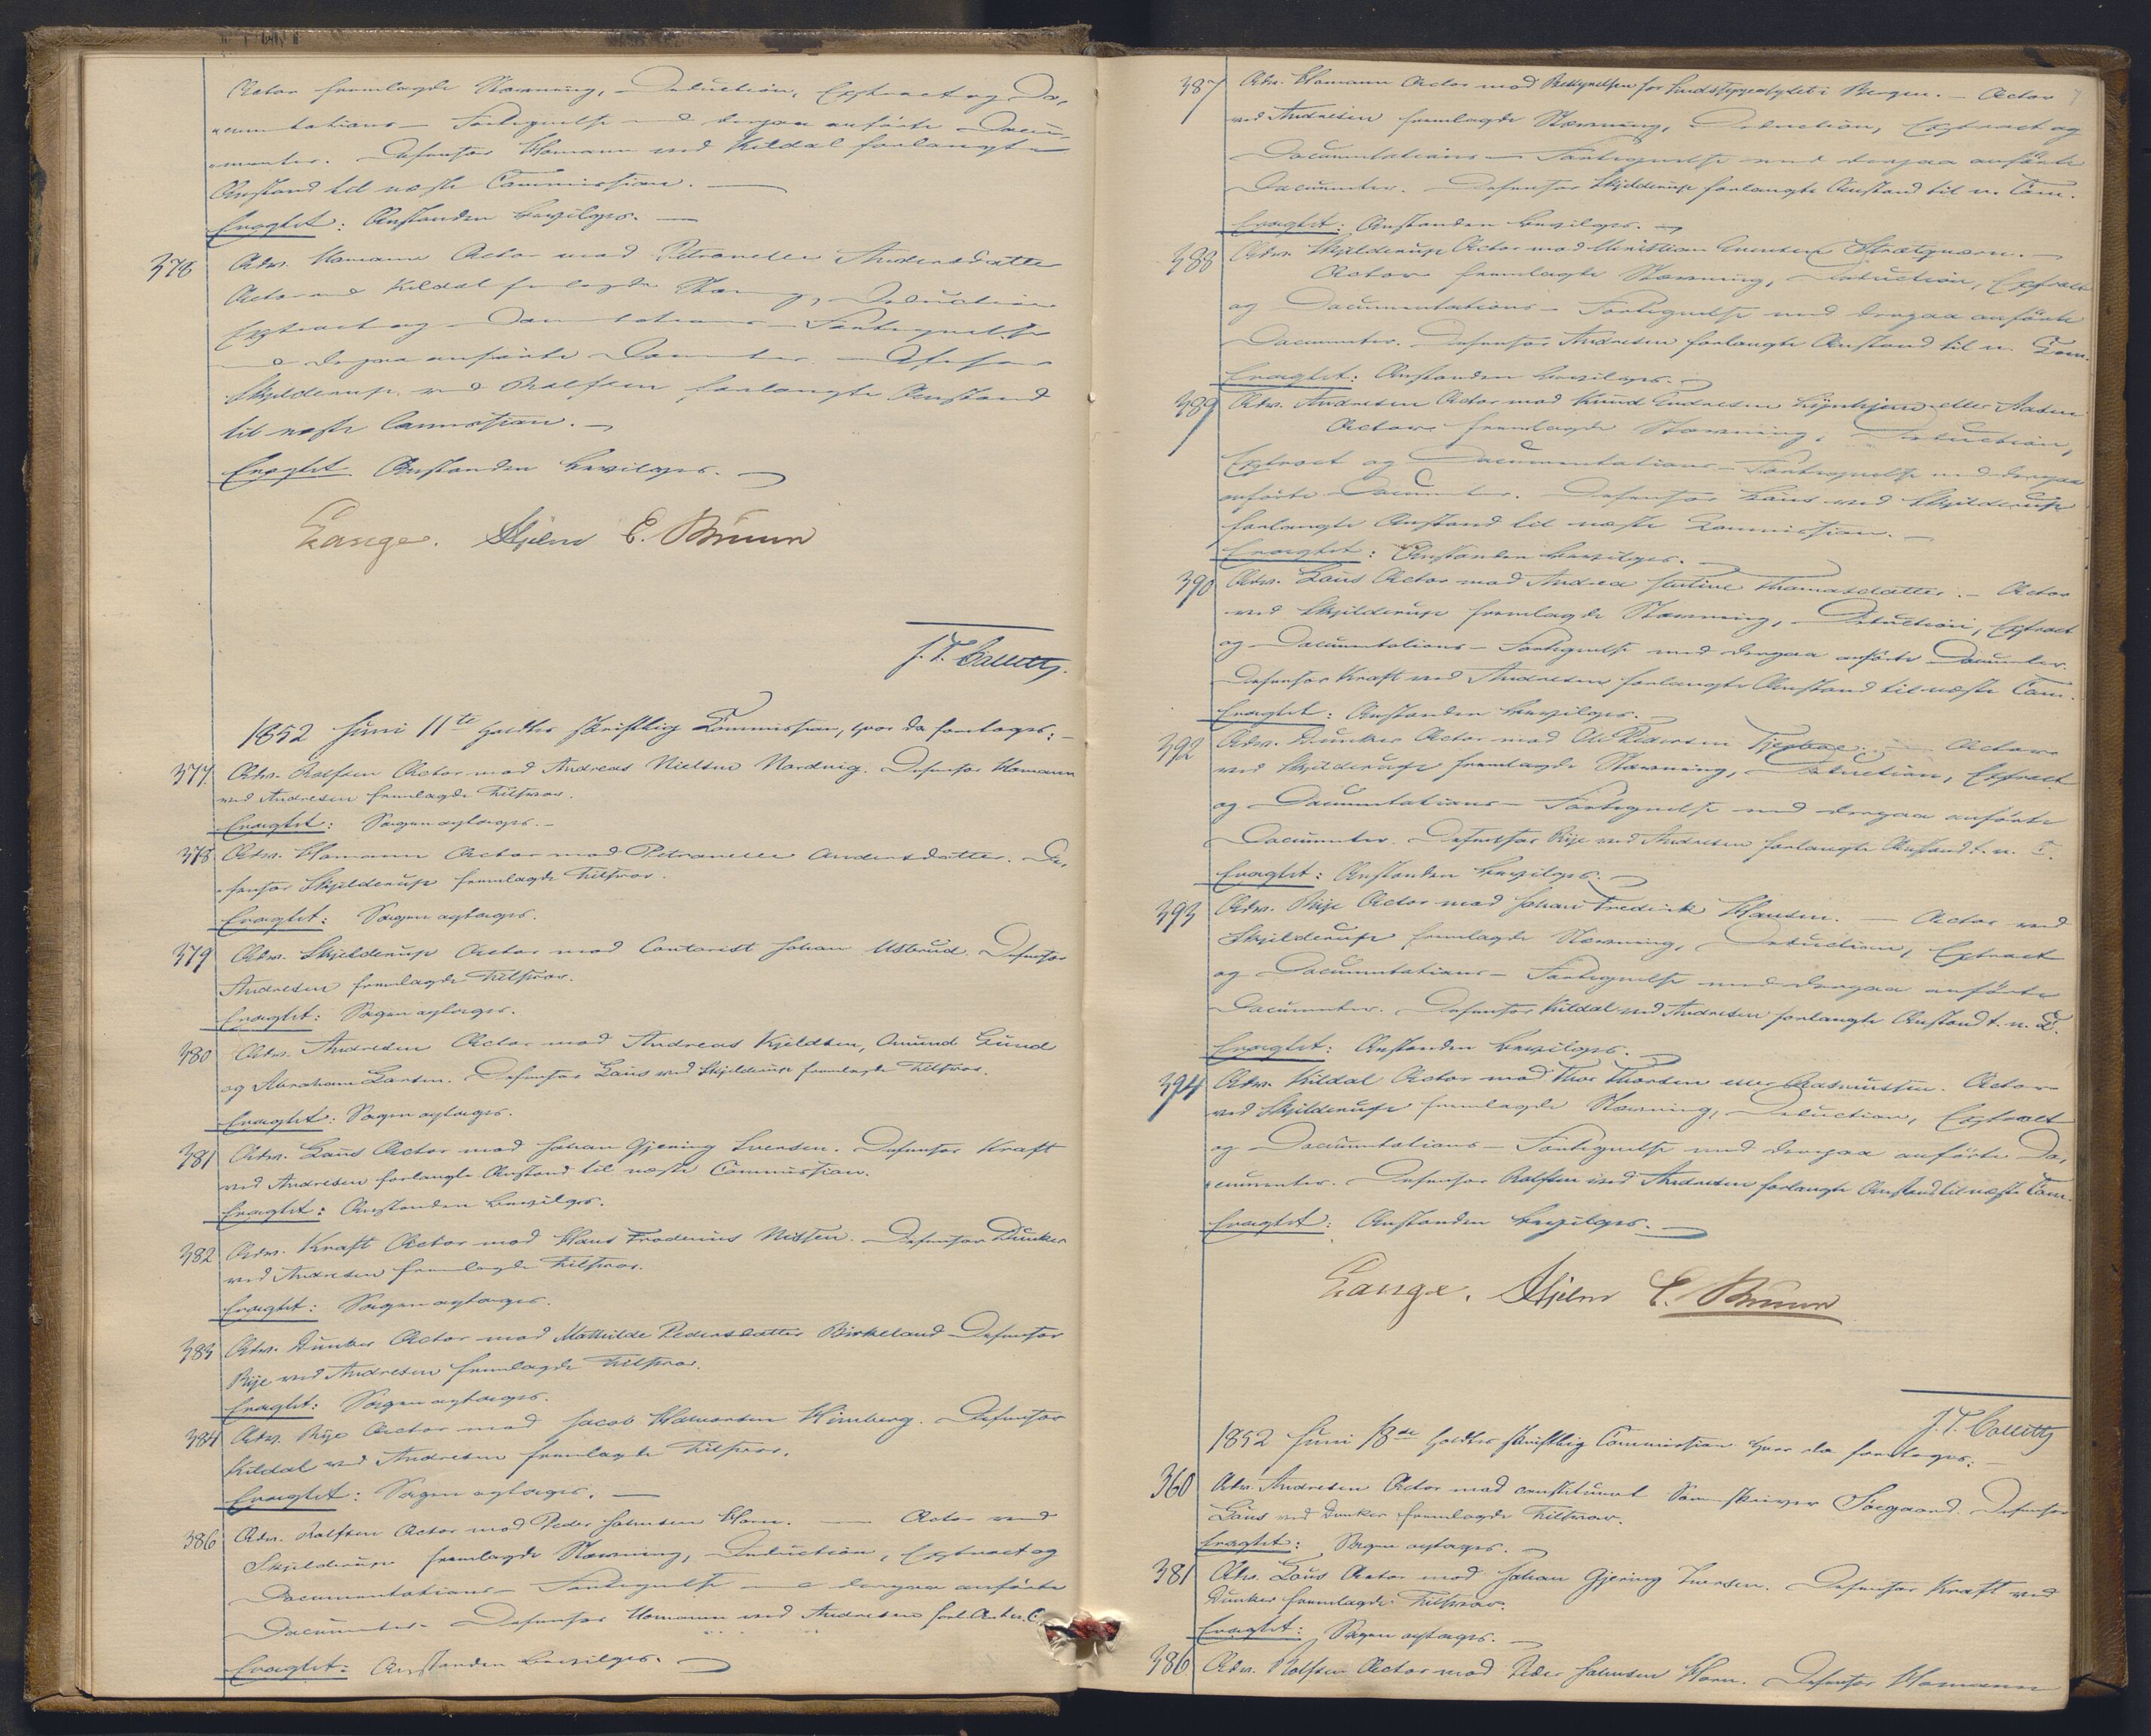 Actor fremlagde Stævning, Deduction, Extract og Do-
cumentations-Fortegnelse med derpaa anførte Docu-
menter. Defensor Homann ved Kildal forlangte
Anstand til næste Commission. —
Eragtet: Anstanden bevilges. —
378 Adv. Homann Actor mod Petronelle Andersdatter
Actor ved Kildal fremlagde Stævning, Deduction
Extract og Documentations-Fortegnelse
med derpaa anførte Documenter. Defensor
Skjelderup ved Rolfsen forlangte Anstand
til næste Commission. —
Eragtet Anstanden bevilges. —
Lange. Hjelm E. Bruun
J. T. Collett
1852 Juni 11te holdtes skriftlig Commission, hvor da foretoges: —
377 Adv. Rolfsen Actor mod Andreas Nielsen Nordvig. Defensor Homann
ved Andresen fremlagde Tilsvar.
Eragtet: Sagen optages. —
378 Adv. Homann Actor mod Petronelle Andersdatter. De-
fensor Skjelderup fremlagde Tilsvar.
Eragtet: Sagen optages.
379 Adv. Skjelderup Actor mod Contorist Johan Ustrud. Defensor
Andresen fremlagde Tilsvar.
Eragtet: Sagen optages.
380 Adv. Andresen Actor mod Andreas Kjeldsen, Amund Lund
og Abraham Larsen. Defensor Laus ved Skjelderup fremlagde Tilsvar.
Eragtet: Sagen optages.
381 Adv. Laus Actor mod Johan Gjering Iversen. Defensor Kraft
ved Andresen forlangte Anstand til næste Commission.
Eragtet: Anstanden bevilges.
382 Adv. Kraft Actor mod Hans Froderius Nissen. Defensor Dunker
ved Andresen fremlagde Tilsvar.
Eragtet: Sagen optages.
383 Adv. Dunker Actor mod Mathilde Pedersdatter Birkeland Defensor
Rije ved Andresen fremlagde Tilsvar.
Eragtet: Sagen optages.
384 Adv. Rije Actor mod Jacob Halvorsen Himberg. Defensor
Kildal ved Andresen fremlagde Tilsvar.
Eragtet: Sagen optages. —
386 Adv. Rolfsen Actor mod Peder Johnsen Horn. — Actor ved
Skjelderup fremlagde Stævning, Deduction, Extract og
Documentations-Fortegnelse med derpaa anførte
Documenter. Defensor Homann ved Andresen forl. An. t. n. C.
Eragtet: Anstanden bevilges. —
387 Adv. Homann Actor mod Bestyrelsen for Sindssygeasylet i Bergen. — Actor
ved Andresen fremlagde Stævning, Deduction, Extract og
Documentations-Fortegnelse med derpaa anførte
Documenter. Defensor Skjelderup forlangte Anstand til n. Com.
Eragtet: Anstanden bevilges. —
388 Adv. Skjelderup Actor mod Christian Evensen Strætqværn. —
Actor fremlagde Stævning, Deduction, Extract
og Documentations-Fortegnelse med derpaa anførte
Documenter. Defensor Andresen forlangte Anstand til n. Com.
Eragtet: Anstanden bevilges. —
389 Adv. Andresen Actor mod Knud Endresen eller Aasen
Actor fremlagde Stævning, Deduction,
Extract og Documentations-Fortegnelse med derpaa
anførte Documenter. Defensor Laus ved Skjelderup
forlangte Anstand til næste Commission. —
Eragtet: Anstanden bevilges. —
390 Adv. Laus Actor mod Andrea Justine Thomasdatter. — Actor
ved Skjelderup fremlagde Stævning, Deduction, Extract
og Documentations-Fortegnelse med derpaa anførte Documenter.
Defensor Kraft ved Andresen forlangte Anstand til næste Com.
Eragtet: Anstanden bevilges. —
392 Adv. Dunker Actor mod Ole Pedersen — Actor
ved Skjelderup fremlagde Stævning, Deduction, Extract
og Documentations-Fortegnelse med derpaa anførte
Documenter. Defensor Rije ved Andresen forlangte Anstand t. n. C.
Eragtet: Anstanden bevilges. —
393 Adv. Rije Actor mod Johan Frederik Hansen. — Actor ved
Skjelderup fremlagde Stævning, Deduction, Extract
og Documentations-Fortegnelse med derpaa anførte
Documenter. Defensor Kildal ved Andresen forlangte Anstand t. n. C.
Eragtet: Anstanden bevilges. —
394 Adv. Kildal Actor mod Thor Thorsen eller Rasmussen. Actor
ved Skjelderup fremlagde Stævning, Deduction, Extract
og Documentations-Fortegnelse med derpaa anførte Do-
cumenter. Defensor Rolfsen ved Andresen forlangte Anstand til næste Com.
Eragtet: Anstanden bevilges. —
Lange. Hjelm E. Bruun
J. T. Collett
1852 Juni 18de holdtes skriftlig Commission hvor da foretoges: —
360 Adv. Andresen Actor mod constitueret Sorenskriver Söegaard. Defensor
Laus ved Dunker fremlagde Tilsvar.
Eragtet: Sagen optages. —
381 Adv. Laus Actor mod Johan Gjering Iversen. Defensor Kraft ved
Dunker fremlagde Tilsvar.
Eragtet: Sagen optages. —
386 Adv. Rolfsen Actor mod Peder Johnsen Horn. Defensor Homann